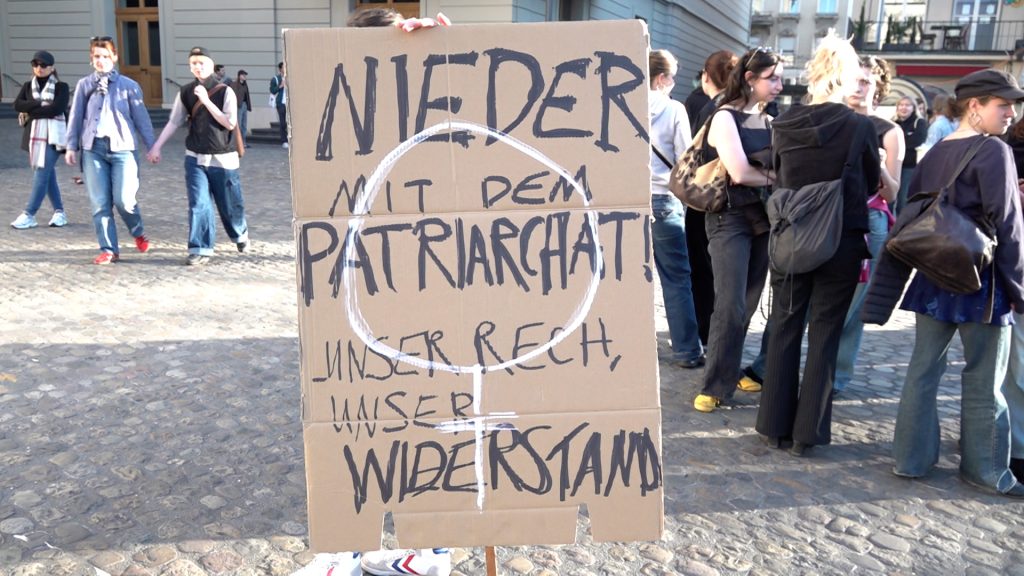 NIEDER
MIT DEM
PATRIARCHAT!
UNSER RECH,
UNSER
WIDERSTAND